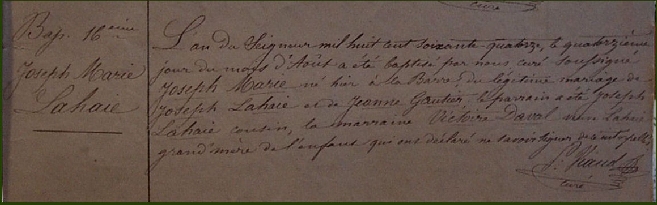 curé
Bap. 16ème
Joseph Marie
Lahaie
L'an du Seigneur mil huit cent soixante quatorze, le quatorzième
jour du mois d'Août a été baptisé par nous curé soussigné
Joseph Marie né hier à la Barre, du légitime mariage de
Joseph Lahaie et de Jeanne Gautier. Le parrain a été Joseph
Lahaie cousin, la marraine Victoire Daval Lahaie
grand'mère de l'enfant qui ont déclaré ne savoir signer de ce interpellés
curé